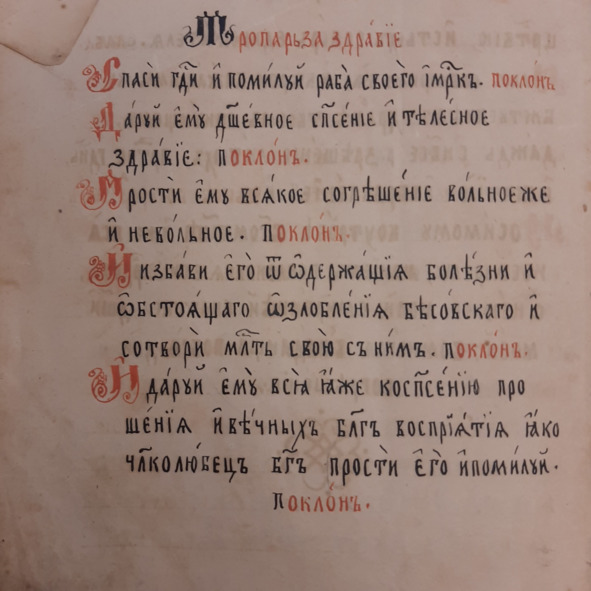 Тропарь за здра́вїе
Спаси́ гд҇и и҆ поми́луй раба̀ своего̀ и҆мр҃къ. поклѡ́нъ
Да́руй є҆мꙋ̀ дш҃е́вное сп҃се́нїе и҆ тѣле́сное
здра́вїе: поклѡ́нъ.
Простѝ є҆мꙋ̀ вся́кое согрѣше́нїе во́льное же
и҆ нево́льное. поклѡ́нъ.
И҆ изба́ви є҆го̀ ѿ ѡ҆держа́щїя боле́зни и҆
ѡ҆бстоя́щаго ѡ҆злобле́нїя бѣсо́вскаго и҆
сотворѝ мл҇ть свою̀ съ ни́мъ. поклѡ́нъ.
И҆ да́руй є҆мꙋ̀ всѧ̑ ꙗ҆́же ко сп҃се́нїю про
ше́нїя и҆ вѣ́чныхъ бл҃гъ воспрїѧ́тїя ꙗ҆́ко
чл҃колю́бецъ бг҃ъ простѝ є҆го̀ и҆ поми́луй.
Поклѡ́нъ.